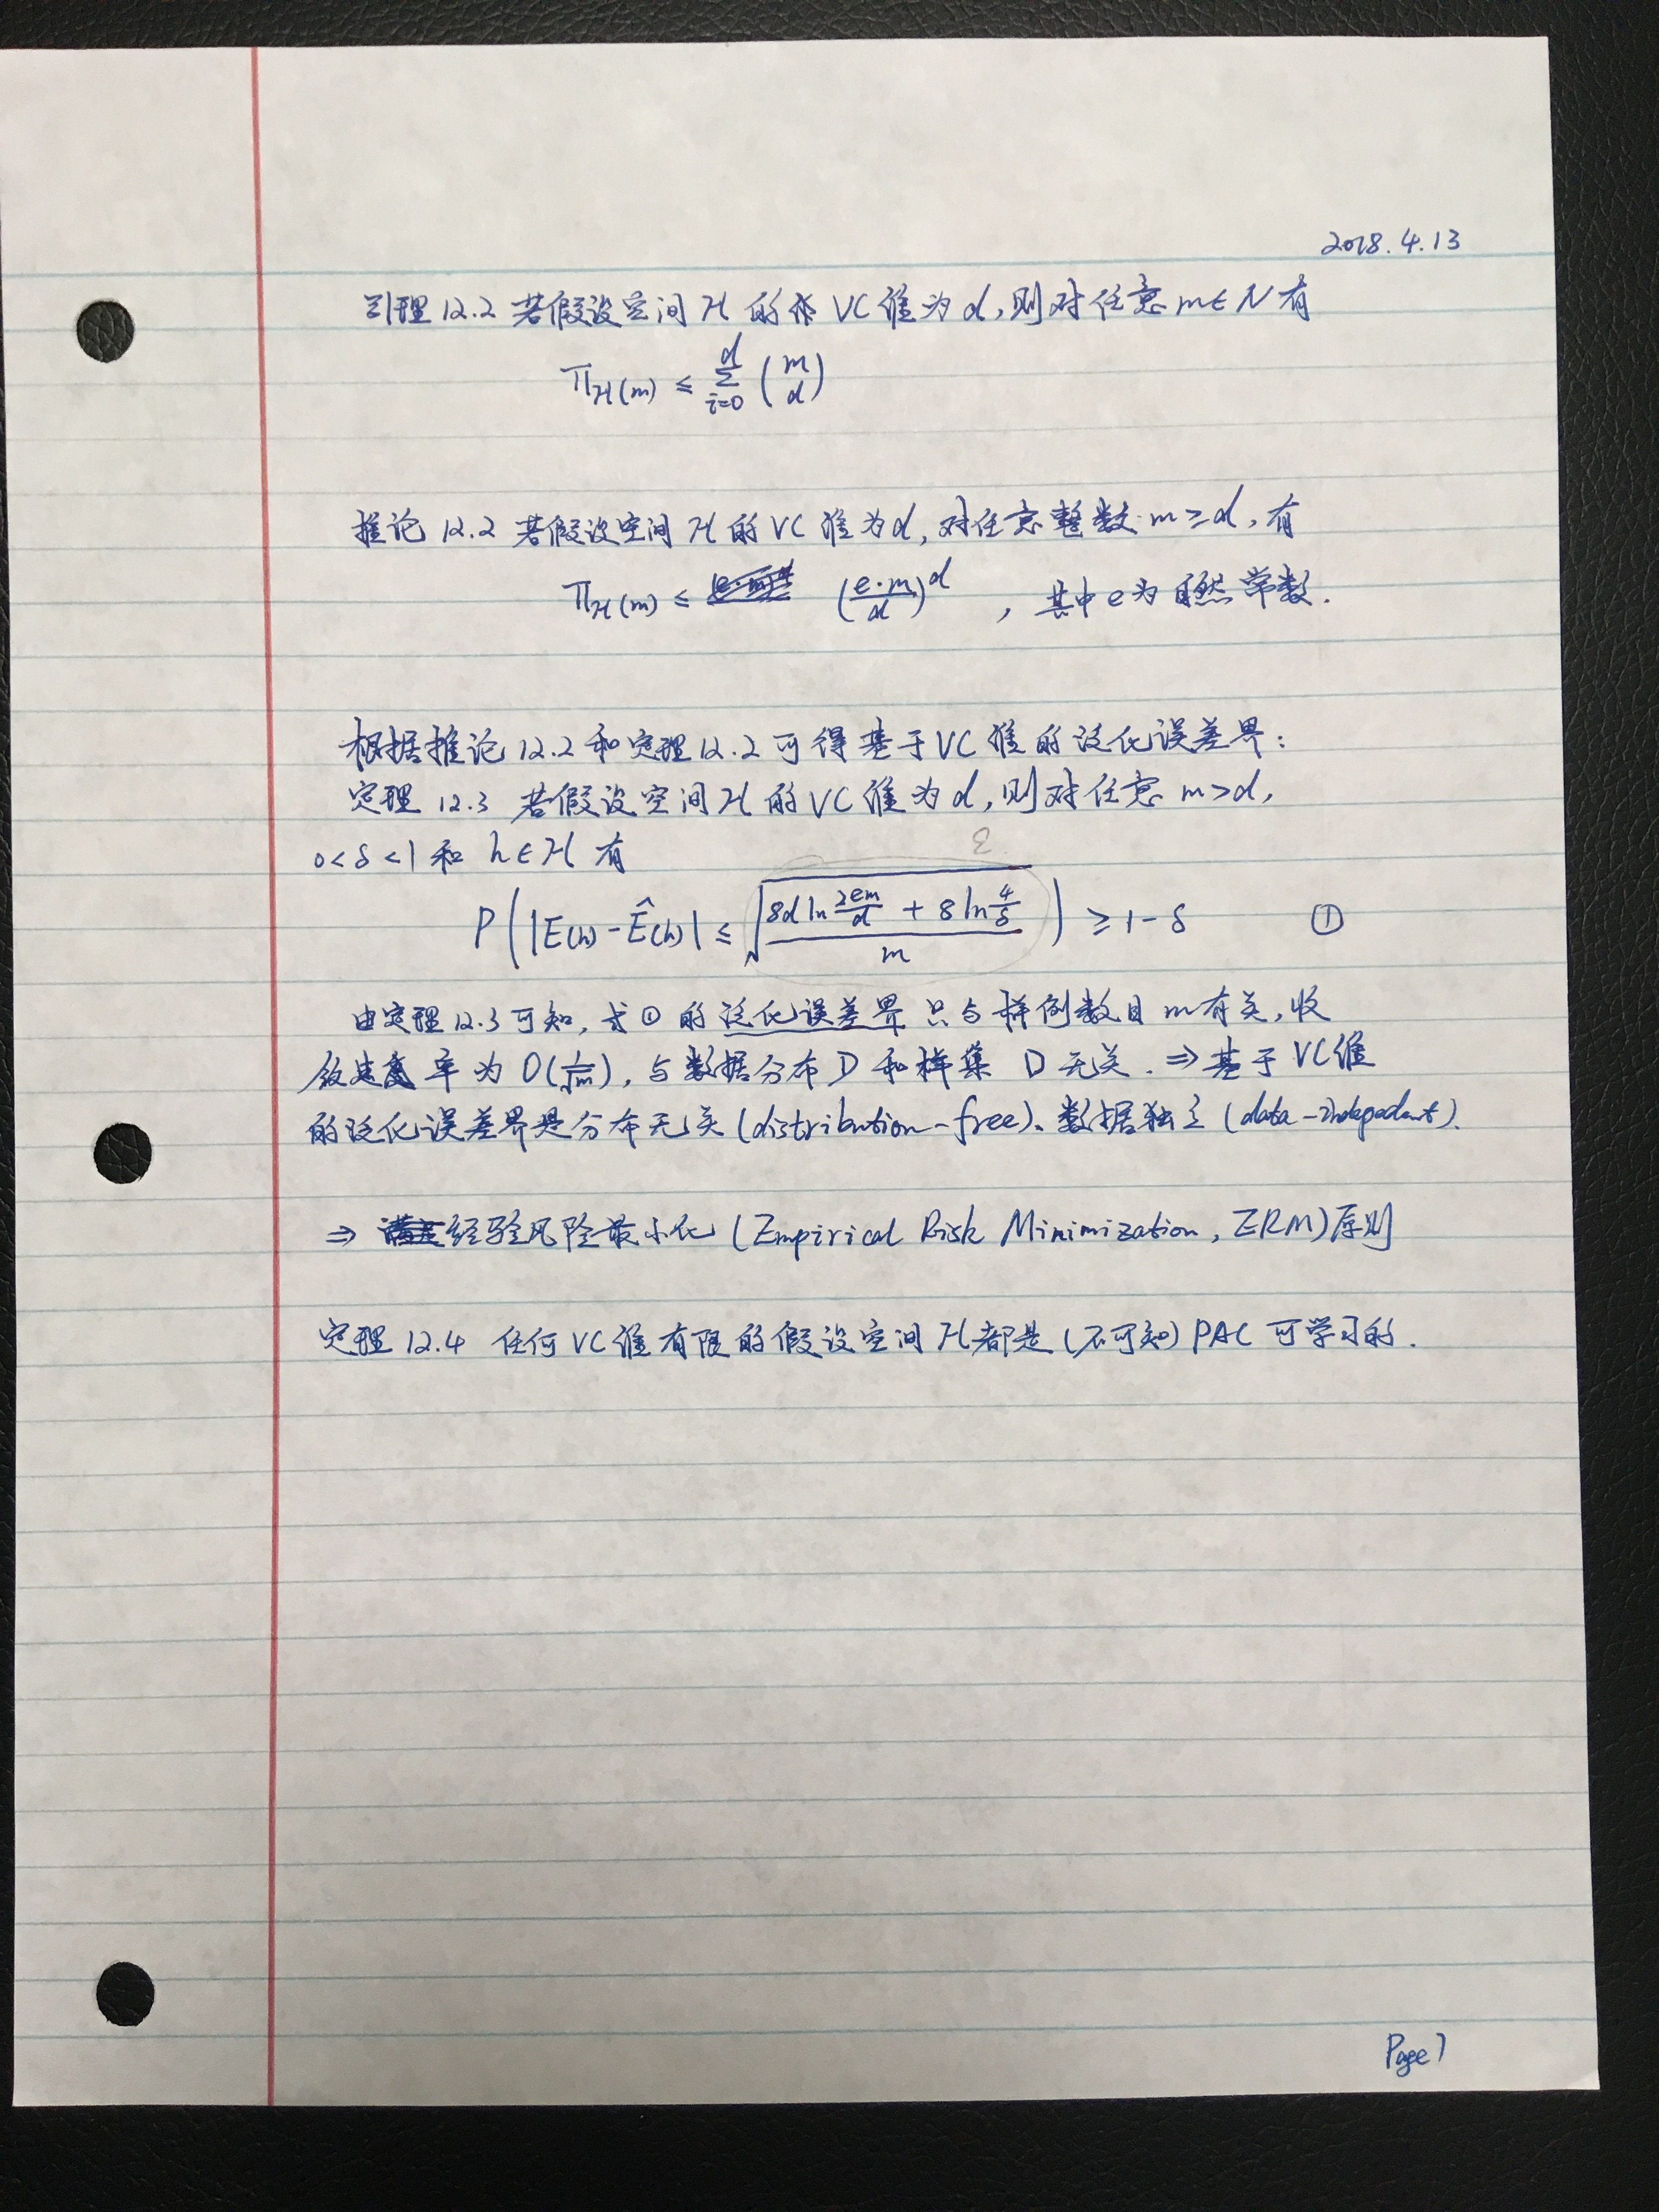 2018.4.13
引理12.2 若假设空间 ℋ 的 VC 维为 d,则对任意 m∈N 有
Π_ℋ(m) ≤ ∑_{i=0}^{d} (m d)
推论 12.2 若假设空间 ℋ 的 VC 维为 d, 对任意整数 m≥d, 有
Π_ℋ(m) ≤ (e·m/d)^d , 其中 e 为自然常数.
根据推论12.2和定理12.2可得基于VC维的泛化误差界:
定理 12.3 若假设空间 ℋ 的 VC 维为 d, 则对任意 m>d,
0<δ<1 和 h∈ℋ 有
ε
P( |E(h) - Ê(h)| ≤ √((8d ln(2em/d) + 8 ln(4/δ))/m) ) ≥ 1-δ ①
由定理12.3可知, 式①的泛化误差界只与样例数目 m 有关, 收
敛率为 O(1/√m), 与数据分布 D 和样集 D 无关. ⇒ 基于 VC 维
的泛化误差界是分布无关(distribution-free)、数据独立(data-indepedent).
⇒ 经验风险最小化 (Empirical Risk Minimization, ERM)原则
定理 12.4 任何VC维有限的假设空间ℋ都是(不可知)PAC可学习的.
Page 7